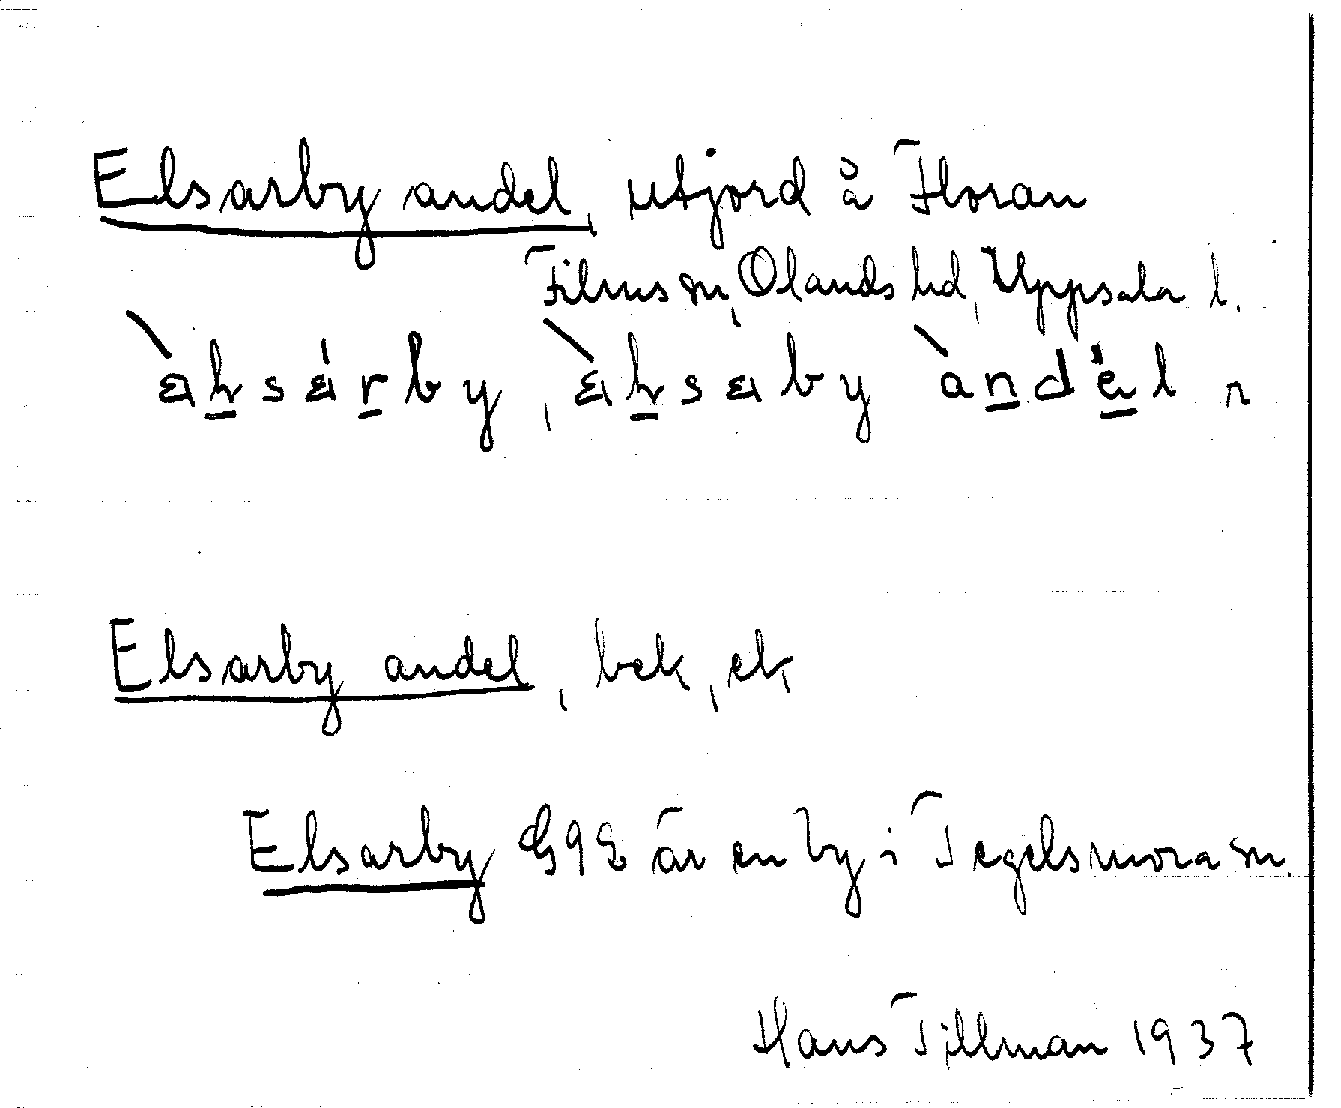 Elsarby andel, utjord å Floran
Films sn, Olands hd, Uppsala l.
Elsarby andel, bek, ek
Elsarby G9E är en by i Tegelsmora sn.
Hans Tillman 1937